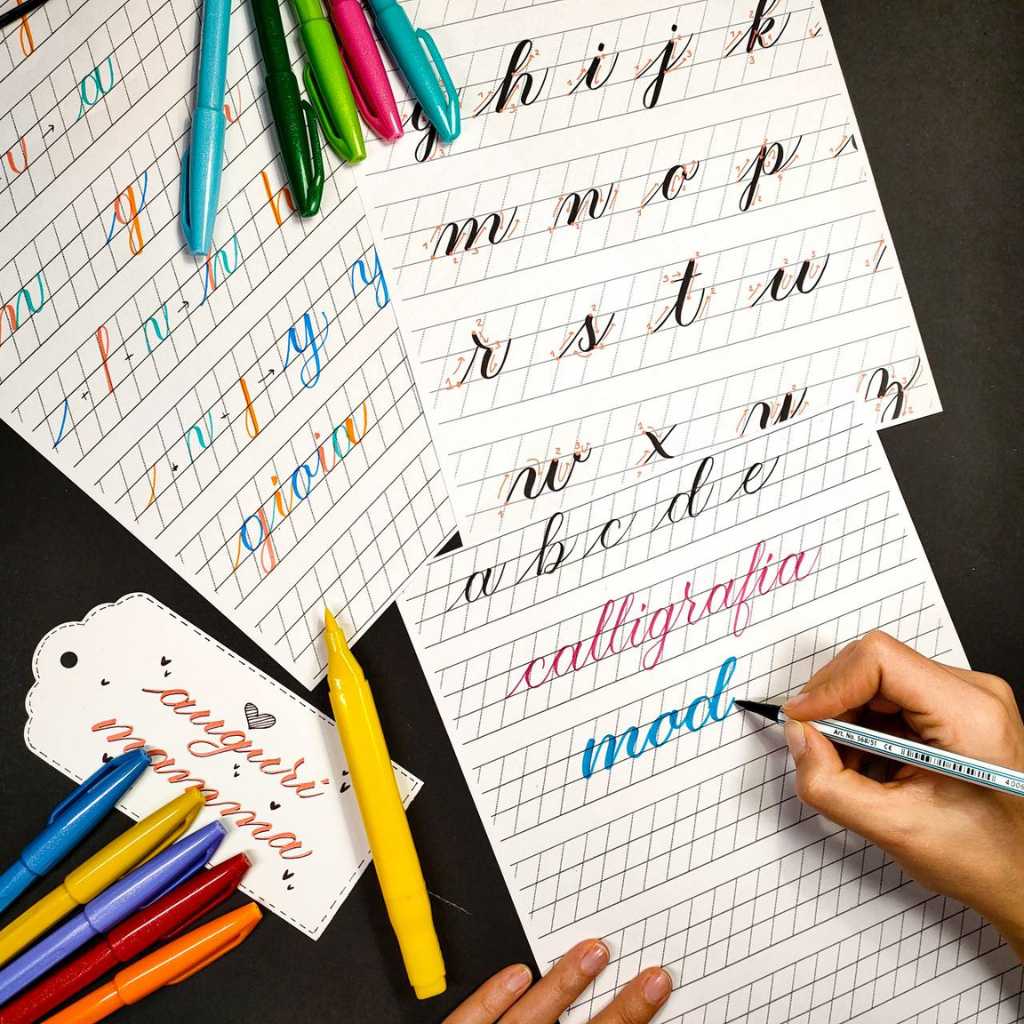 a
g
y
gioia
g h i j k
m n o p
r s t u
w x z
a b c d e
calligrafia
mod
Art. No. 568/51 CE
auguri
mamma